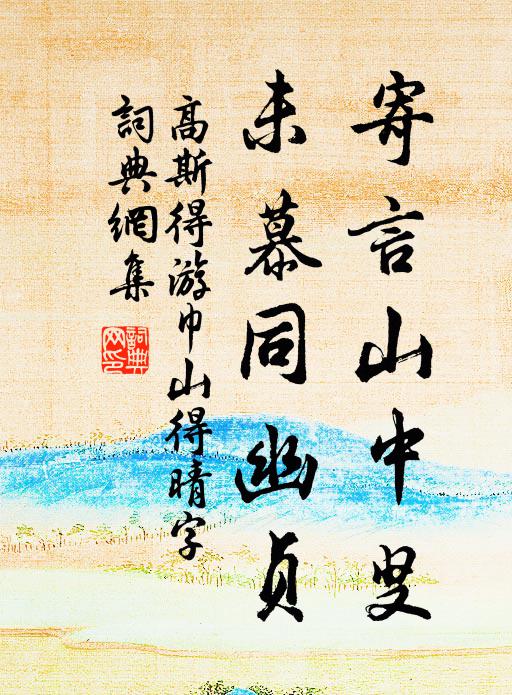 寄言山中叟
未慕同幽贞
高斯得游巾山得晴字
詞典網集
詞典
网印